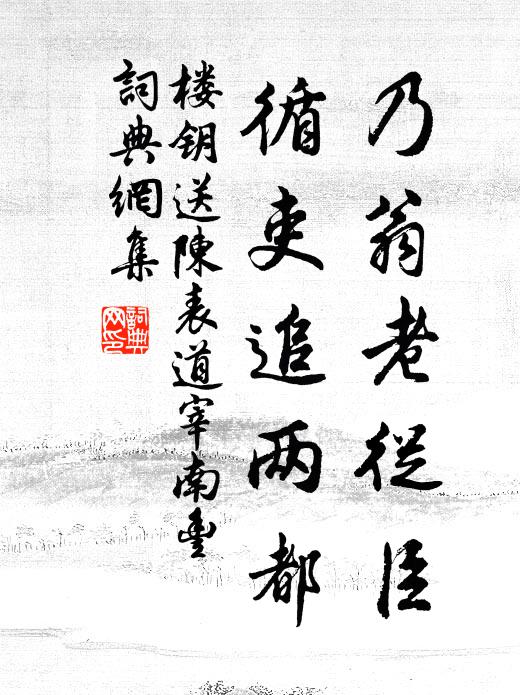 乃翁老從臣
循吏追两都
楼钥送陳表道宰南豐
詞典網集
詞典
网印